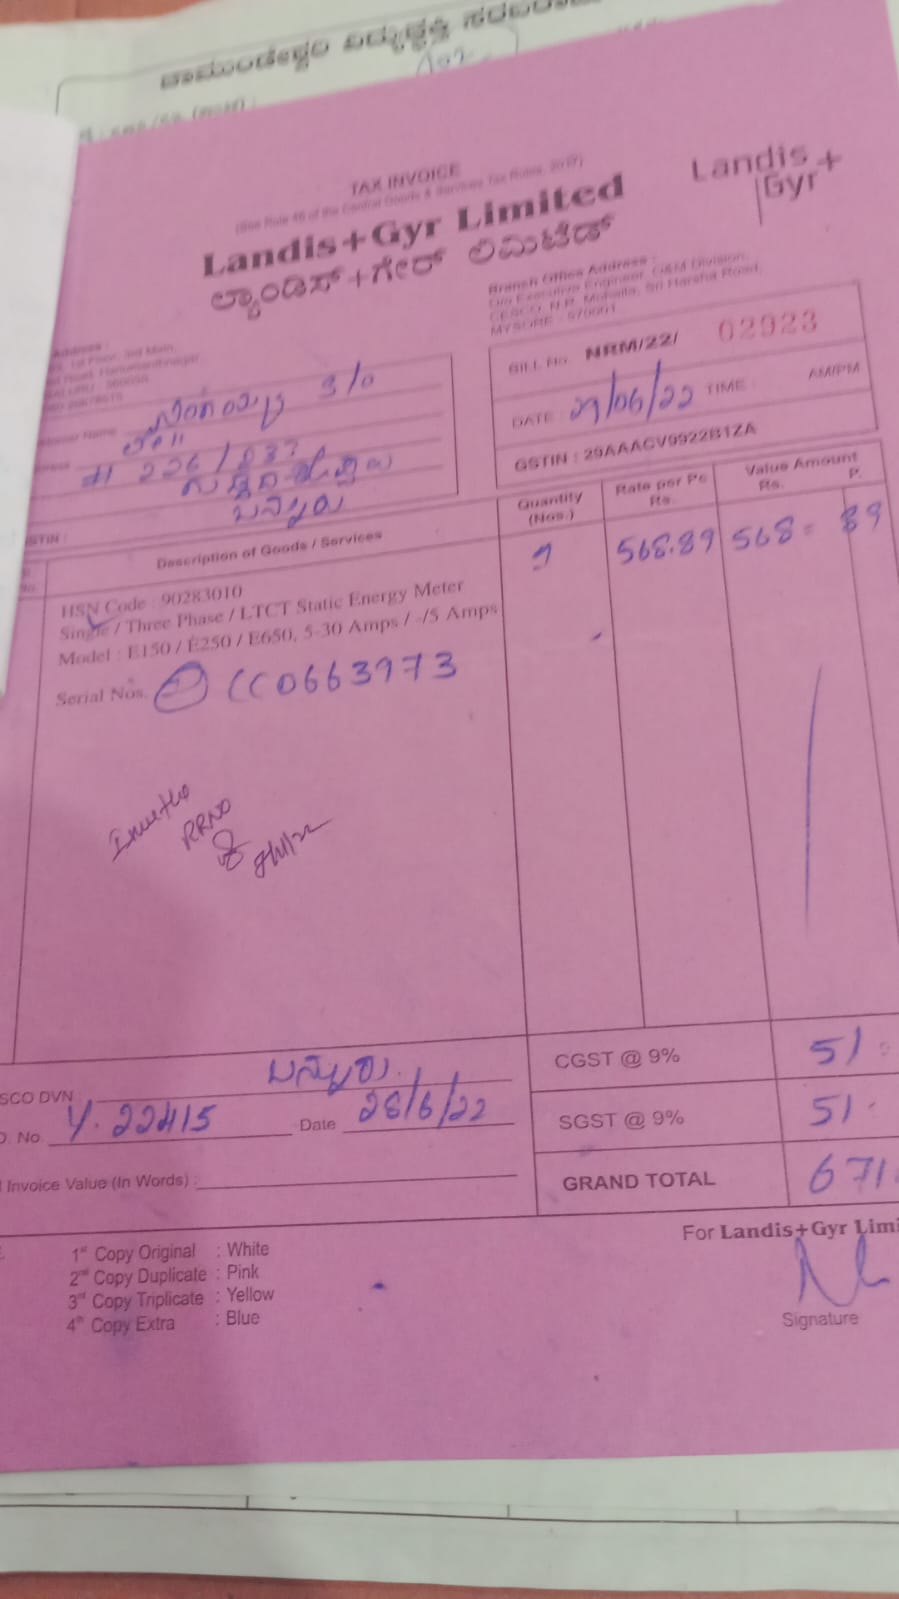 ಚಾಮುಂಡೇಶ್ವರಿ ವಿದ್ಯುಚ್ಛಕ್ತಿ
TAX INVOICE
(See Rule 46 of the Central Goods & Services Tax Rules, 2017)
Landis+Gyr Limited
ಲ್ಯಾಂಡಿಸ್+ಗೇರ್ ಲಿಮಿಟೆಡ್
Landis
Gyr+
Branch Office Address :
O/o Executive Engineer, O&M Division,
CESCO, N.R. Mohalla, Sri Harsha Road,
MYSORE - 570001
BILL No. NRM/22/ 02923
DATE : 29/06/22 TIME : AM/PM
GSTIN : 29AAACV9922B1ZA
Name
S/O
# 226/
GSTIN :
Description of Goods / Services
Quantity (Nos.)
Rate per Pc Rs.
Value Amount Rs. P.
HSN Code : 90283010
1 568.89 568 = 89
Single / Three Phase / LTCT Static Energy Meter
Model : E150 / E250 / E650, 5-30 Amps / -/5 Amps
Serial Nos. CC0663973
RRNO
CGST @ 9% 51
SGST @ 9% 51
GRAND TOTAL 671
SCO DVN : ಬನ್ನೂರು.
No. 4.22415 Date 28/6/22
Invoice Value (In Words) :
1st Copy Original : White
2nd Copy Duplicate : Pink
3rd Copy Triplicate : Yellow
4th Copy Extra : Blue
For Landis+Gyr Limi
Signature